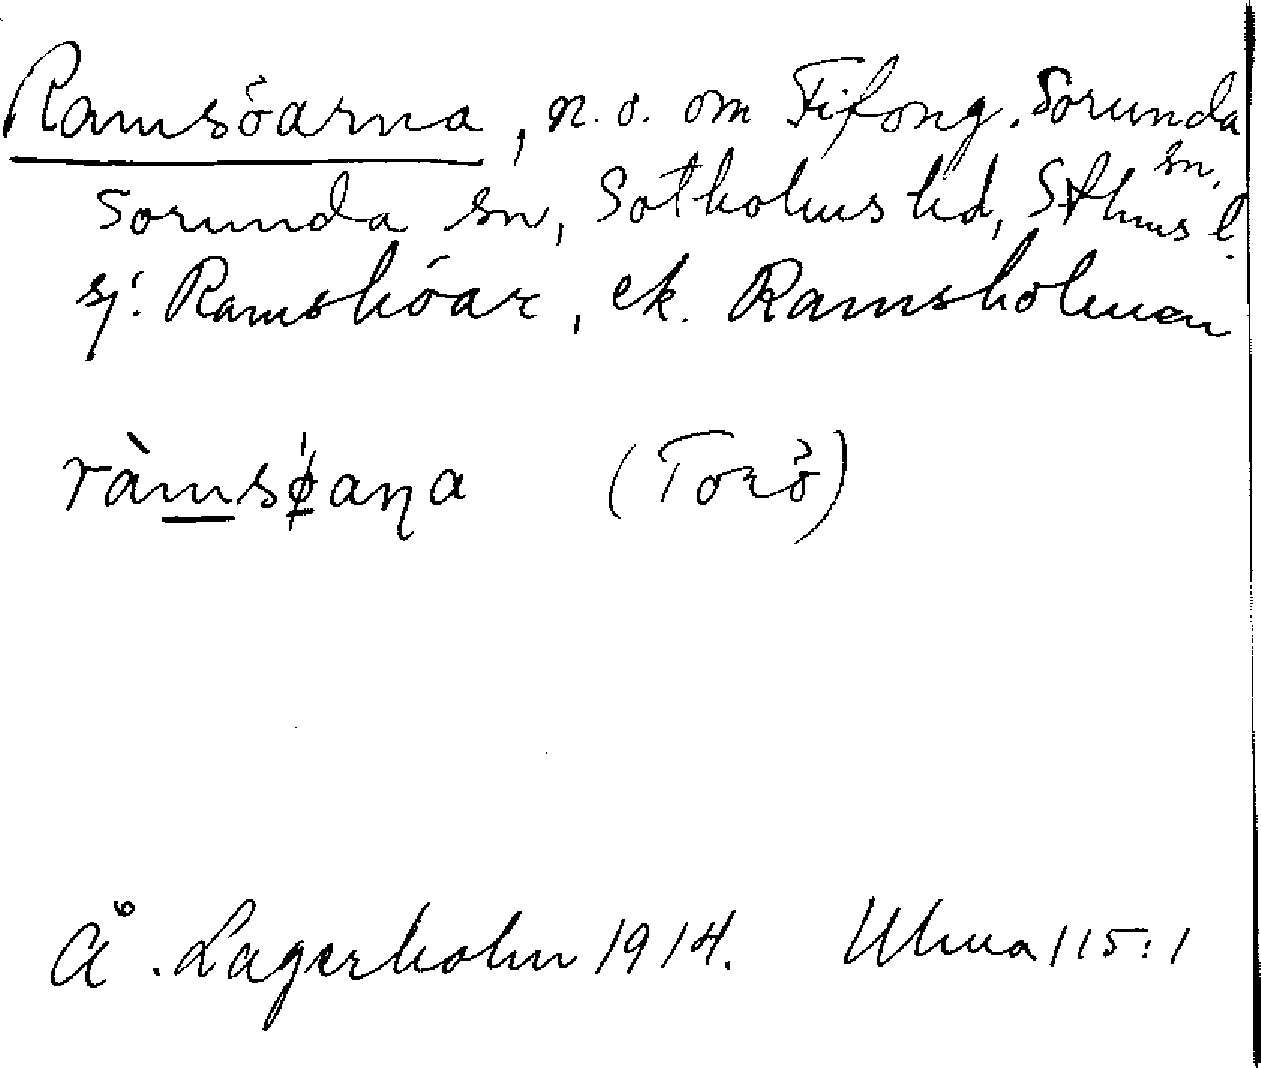 Ramsöarna, n.o. om Fifong. Sorunda sn.
Sorunda sn, Sotholms hd, Sthms l.
sj. Ramsköar, ek. Ramsholmen
ràmsø̨aṇa (Torö)
Å. Lagerholm 1914. Ulma 115:1